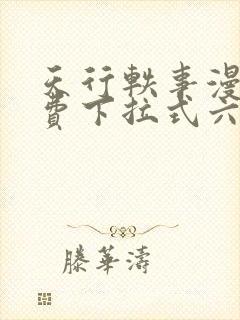 天行軼事漫
費下拉式六
滕華濤